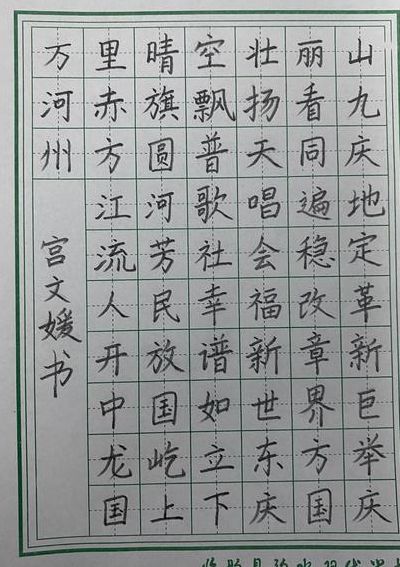 万里晴空壮丽山
河赤旗飘扬看九
州方圆普天同庆
江河歌唱遍地
流芳社会稳定
人民幸福改革
开放谱新章新
中国如世界巨
龙屹立东方举
国上下庆国庆
宫文媛书